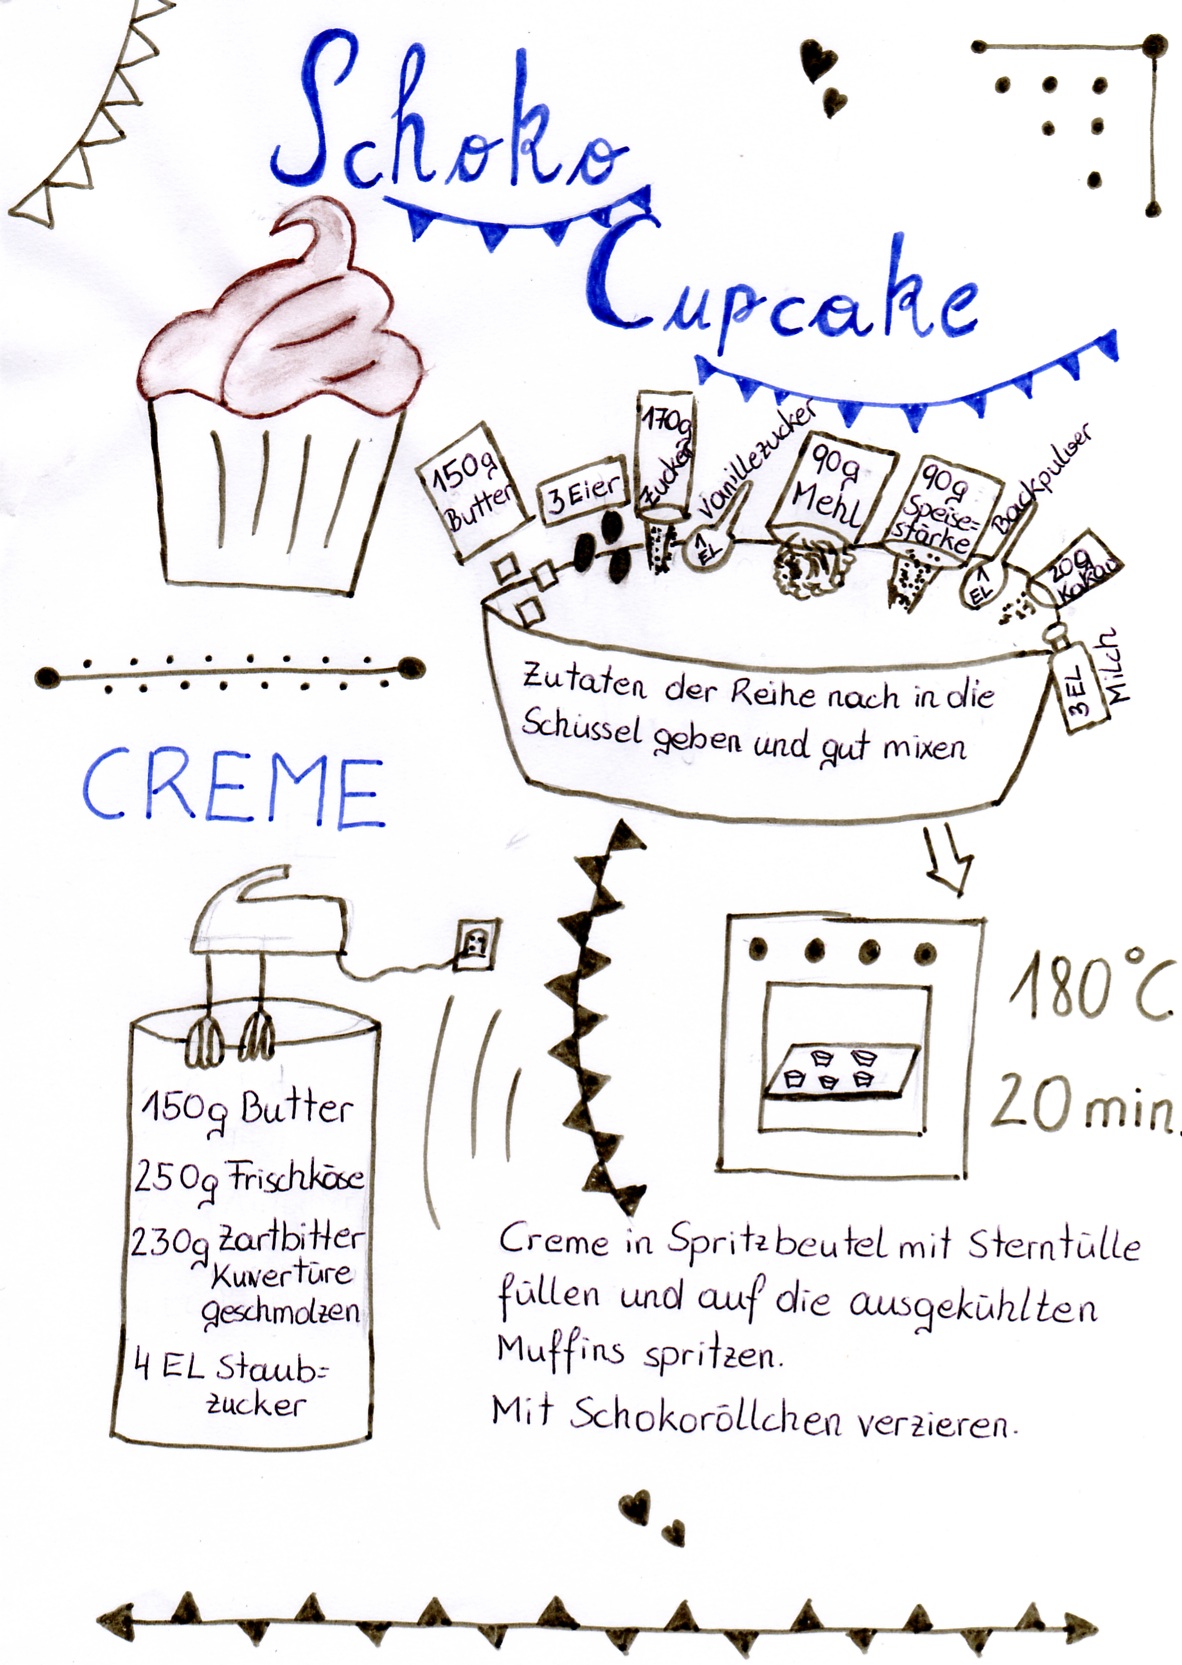 Schoko
Cupcake
150g
Butter
3 Eier
170g
Zucker
1
EL
Vanillezucker
90g
Mehl
90g
Speise=
stärke
1
EL
Backpulver
20g
Kakao
3 EL
Milch
Zutaten der Reihe nach in die
Schüssel geben und gut mixen
CREME
180°C
20 min.
150g Butter
250g Frischkäse
230g Zartbitter
Kuvertüre
geschmolzen
4 EL Staub=
zucker
Creme in Spritzbeutel mit Sterntülle
füllen und auf die ausgekühlten
Muffins spritzen.
Mit Schokoröllchen verzieren.